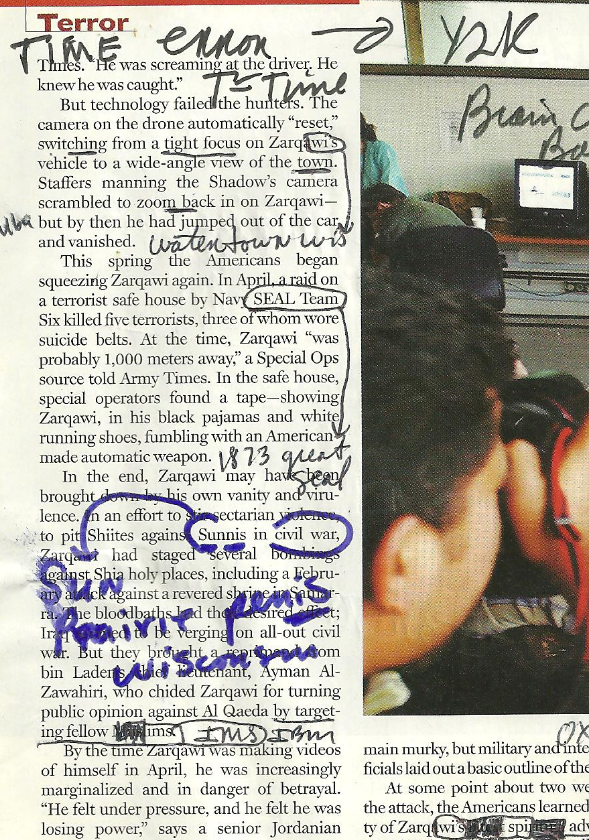 Terror
TIME error Y2K
Times. "He was screaming at the driver. He
knew he was caught."
T= Time
But technology failed the hunters. The
camera on the drone automatically "reset,"
switching from a tight focus on Zarqawi's
vehicle to a wide-angle view of the town.
Staffers manning the Shadow's camera
scrambled to zoom back in on Zarqawi—
but by then he had jumped out of the car
and vanished.
watertown wis
This spring the Americans began
squeezing Zarqawi again. In April, a raid on
a terrorist safe house by Navy SEAL Team
Six killed five terrorists, three of whom wore
suicide belts. At the time, Zarqawi "was
probably 1,000 meters away," a Special Ops
source told Army Times. In the safe house,
special operators found a tape—showing
Zarqawi, in his black pajamas and white
running shoes, fumbling with an American-
made automatic weapon.
1873 great
Seal
In the end, Zarqawi may have been
brought down by his own vanity and viru-
lence. In an effort to stir sectarian violence,
to pit Shiites against Sunnis in civil war,
Zarqawi had staged several bombings
against Shia holy places, including a Febru-
ary attack against a revered shrine in Samar-
ra. The bloodbaths had the desired effect;
Iraq to be verging on all-out civil
war. But they brought a reprimand from
bin Laden's chief lieutenant, Ayman Al-
Zawahiri, who chided Zarqawi for turning
public opinion against Al Qaeda by target-
ing fellow Muslims.
IMS IBM
Sun
Prairie penis
Wisconsin
By the time Zarqawi was making videos
of himself in April, he was increasingly
marginalized and in danger of betrayal.
"He felt under pressure, and he felt he was
losing power," says a senior Jordanian
Brain
main murky, but military and inte
ficials laid out a basic outline of the
At some point about two we
the attack, the Americans learned
ty of Zarqawi's adv